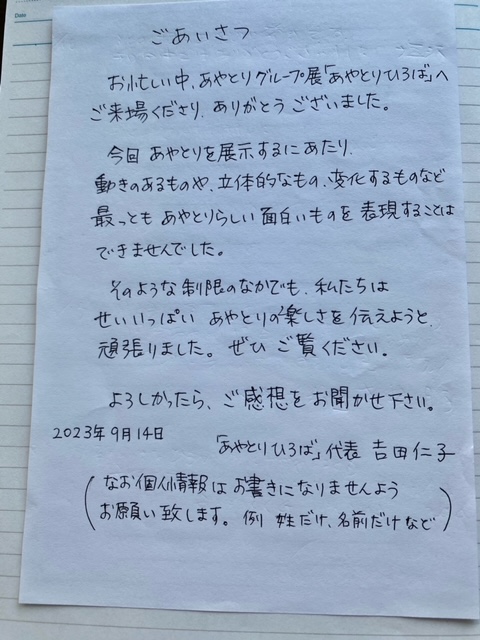 ごあいさつ
お忙しい中、あやとりグループ展「あやとりひろば」へ
ご来場くださり、ありがとうございました。
今回 あやとりを展示するにあたり、
動きのあるものや、立体的なもの、変化するものなど
最っとも あやとりらしい面白いものを表現することは
できませんでした。
そのような制限のなかでも、私たちは
せいいっぱい あやとりの楽しさを伝えようと、
頑張りました。ぜひ ご覧ください。
よろしかったら、ご感想をお聞かせ下さい。
2023年9月14日
「あやとりひろば」代表 吉田仁子
(なお個人情報はお書きになりませんよう
お願い致します。例 姓だけ、名前だけなど)
Date